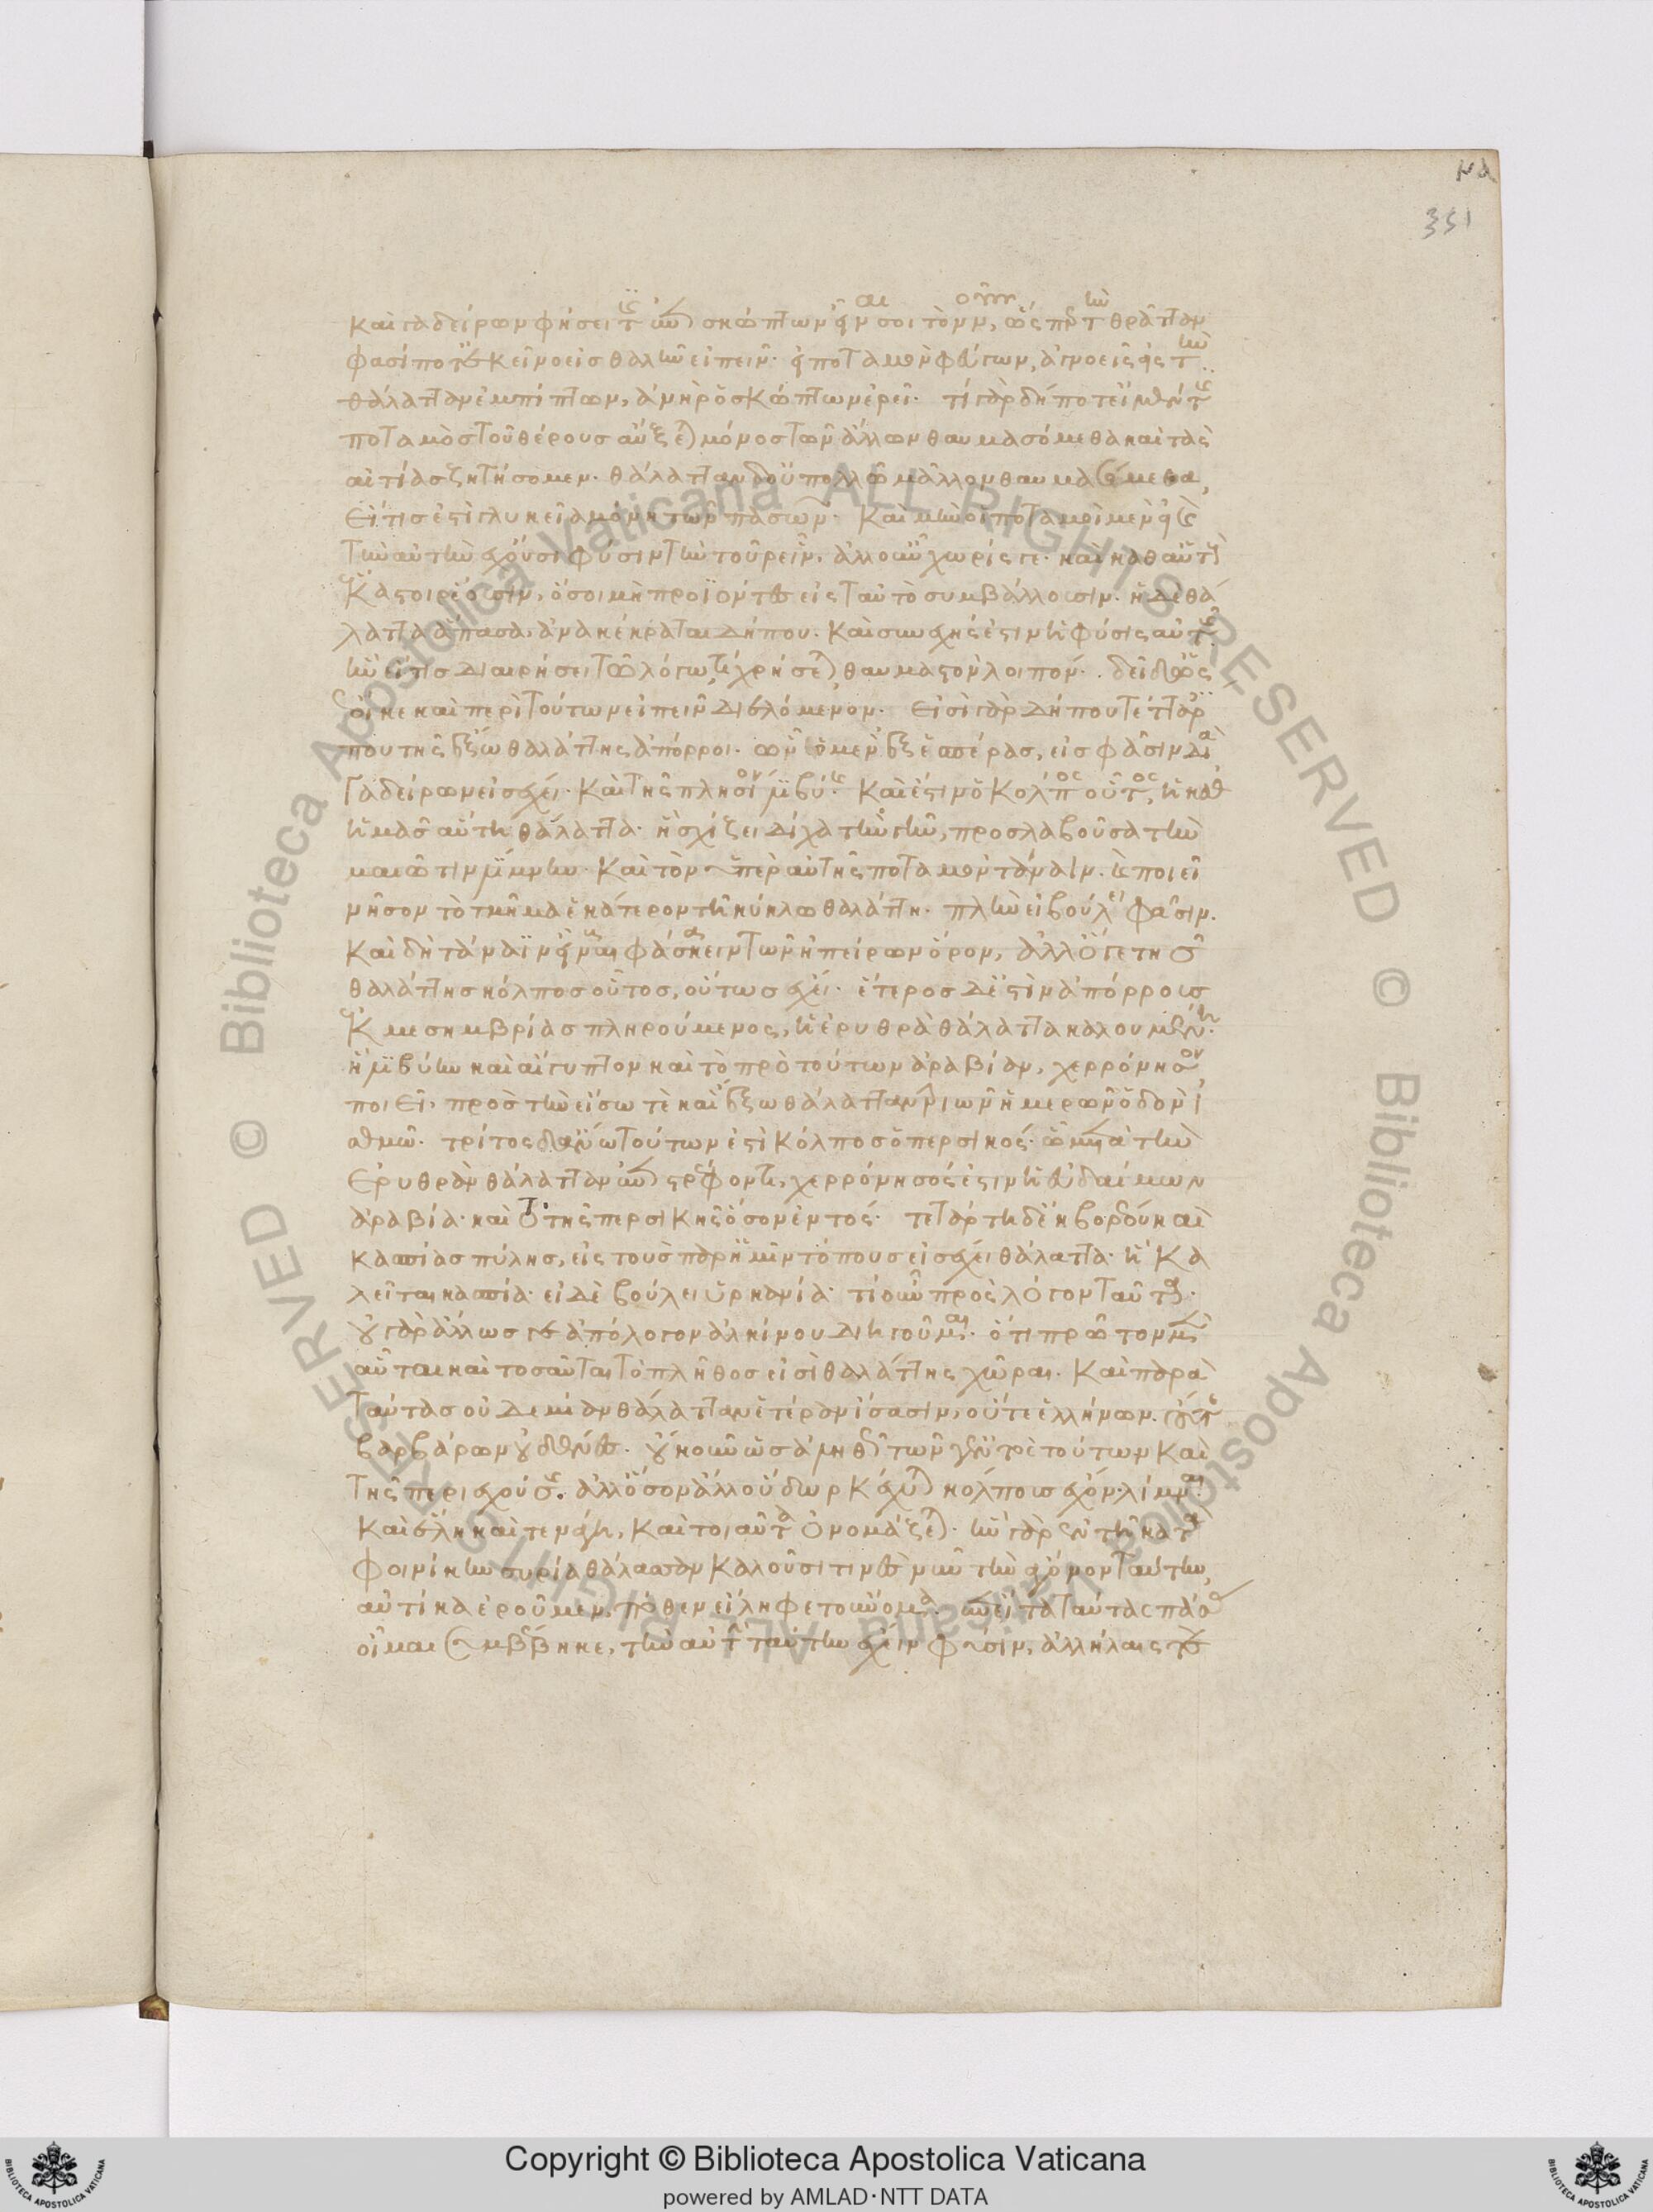 να
351
καὶ γαδείρων φήσει τις εἶναι σκώπτων εἶναι σοι τὸν νοῦν, ὥσπερ τὴν θρᾶτταν
φασί που κεῖνο εἰς θαλῆν εἰπεῖν· ποταμὸν φεύγων, ἀγνοεῖς εἰς τὴν
θάλατταν ἐμπίπτων, ἀνὴρ ὁ σκώπτων ἐρεῖ· τί γὰρ δήποτε εἰ μὲν τις
ποταμὸς τοῦ θέρους αὔξεται μόνος τῶν ἄλλων θαυμασόμεθα καὶ τὰς
αἰτίας ζητήσομεν· θάλατταν δ' οὐ πολλῷ μᾶλλον θαυμασόμεθα,
εἴ τις ἐστὶ γλυκεῖα μόνη τῶν πασῶν· καὶ μὴν οἱ ποταμοὶ μὲν εἰ καὶ
τὴν αὐτὴν ἔχουσι φύσιν τὴν τοῦ ῥεῖν, ἀλλ' οὖν χωρίς γε καὶ καθ' αὑτὸν
ἕκαστοι ῥέουσιν, ὅσοι μὴ προϊόντες εἰς ταὐτὸ συμβάλλουσιν. ἡ δὲ θά
λαττα ἅπασα, ἀνακέκραται δήπου. καὶ συνεχής ἐστιν ἡ φύσις αὐτῆς
ἣν εἴ τις διαιρήσει τῷ λόγῳ, τί χρήσεται, θαυμαστὸν λοιπόν. δεῖ δ' ὡς
ἔοικε καὶ περὶ τούτων εἰπεῖν διελόμενον. εἰσὶ γὰρ δήπου τέτταρες
που τῆς ἔξω θαλάττης ἀπόρροι. ὧν ὁ μὲν ἐξ ἑσπέρας, εἴς φασιν διὰ
γαδείρων εἰσέχει. καὶ τῆς πλησίον λιβύης. καὶ ἔστιν ὁ κόλπος οὗτος, ἡ καθ'
ἡμᾶς αὕτη θάλαττα· ἣ σχίζει δίχα τὴν γῆν, προσλαβοῦσα τὴν
μαιῶτιν λίμνην. καὶ τὸν ὑπὲρ αὐτῆς ποταμὸν τάναϊν. καὶ ποιεῖ
νῆσον τὸ τμῆμα ἑκάτερον τῇ κύκλῳ θαλάττῃ. πλὴν εἰ βούλει φασιν.
καὶ δὴ τάναϊν εἶναι φάσκειν τῶν ἠπείρων ὅρον, ἀλλ' ὅ γε τῆς
θαλάττης κόλπος οὗτος, οὕτως ἔχει. ἕτερος δέ ἐστιν ἀπόρρους
ἐκ μεσημβρίας πληρούμενος, ἡ ἐρυθρὰ θάλαττα καλουμένη.
ἣ λιβύην καὶ αἴγυπτον καὶ τὸ πρὸ τούτων ἀραβίαν, χερρόνησον
ποιεῖ, πρὸς τὴν εἴσω τε καὶ ἔξω θάλατταν τριῶν ἡμερῶν ὁδὸν ἰ
σθμῶ. τρίτος δ' ἄνω τούτων ἐστὶ κόλπος ὁ περσικός. ᾧ μετὰ τὴν
ἐρυθρὰν θάλατταν ἀναστρέφοντι, χερρόνησός ἐστιν ἡ εὐδαίμων
ἀραβία· καὶ τῆς περσικῆς ὅσον ἐντός. τετάρτη δὲ ἡ βορρᾶθεν καὶ
κασπίας πύλης, εἰς τοὺς παρ' ἡμῖν τόπους εἰσέχει θάλαττα· ἣ κα
λεῖται κασπία· εἰ δὲ βούλει ὑρκανία· τί οὖν πρὸς λόγον ταῦτα.
οὐ γὰρ ἄλλως γε ἀπόλογον ἀλκίνου διηγοῦμαι. ὅτι πρῶτον μὲν
αὗται καὶ τοσαῦται τὸ πλῆθος εἰσὶ θαλάττης χῶραι. καὶ παρὰ
ταύτας οὐδεμίαν θάλατταν ἑτέραν ἴσασιν, οὔτε ἑλλήνων. οὔτε
βαρβάρων οὐδένες. οὔκουν ὡς ἀληθῶς τῶν γε τούτων καὶ
τῆς περιεχούσης. ἀλλ' ὅσον ἄλλο ὕδωρ κέχυται κόλποις ἔχον, λίμναι
καὶ ἕλη καὶ τενάγη, καὶ τοιαῦτα ὀνομάζεται. ἣν γὰρ ἐν τῇ κατὰ
φοινίκην συρία θάλασσαν καλοῦσί τινες νῦν τὴν ἐχόμον ταύτην,
αὐτίκα ἐροῦμεν, πόθεν εἴληφε τοὔνομα. εἶτα ταύτας πάσας
οἶμαι συμβέβηκε, τὴν αὐτὴν ταύτην ἔχειν φύσιν, ἀλλήλαις τε